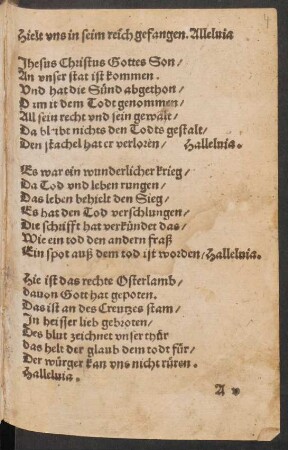 Hielt vns in seim reich gefangen. Alleluia
Jhesus Christus Gottes Son/
An vnser stat ist kommen.
Vnd hat die Sünd abgethon/
Damit dem Todt genommen/
All sein recht vnd sein gewalt/
Da bleibt nichts den Todts gestalt/
Den stachel hat er verloren/ Halleluia.
Es war ein wunderlicher krieg/
Da Tod vnd leben rungen/
Das leben behielt den Sieg/
Es hat den Tod verschlungen/
Die schrifft hat verkündet das/
Wie ein tod den andern fraß
Ein spot auß dem tod ist worden/ Halleluia.
Hie ist das rechte Osterlamb/
dauon Gott hat gepoten.
Das ist an des Creutzes stam/
In heisser lieb gebroten/
Des blut zeichnet vnser thür
das helt der glaub dem todt für/
Der würger kan vns nicht rüren.
Halleluia.
A v